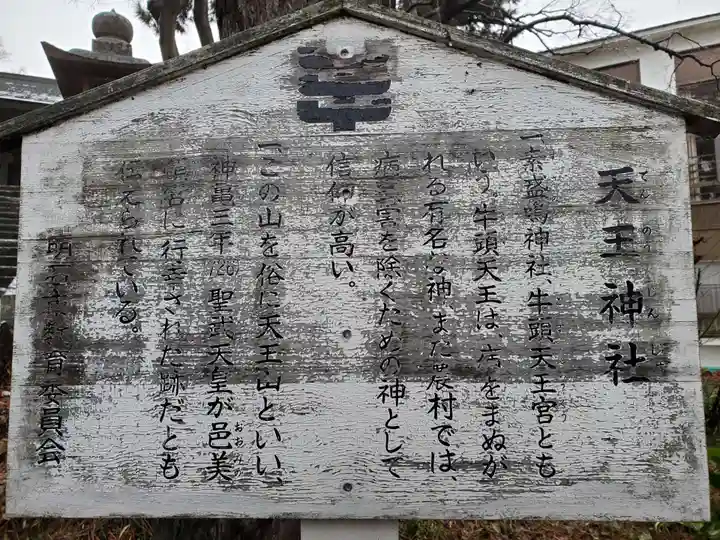 天王神社
一素盞嗚神社、牛頭天王宮とも
いう。牛頭天王は、疫をまぬが
れる有名な神、また農村では、
病虫害を除くための神として
信仰が高い。
一この山を俗に天王山といい、
神亀三年(726)聖武天皇が邑美
頓宮に行幸された跡だとも
伝えられている。
明石市教育委員会